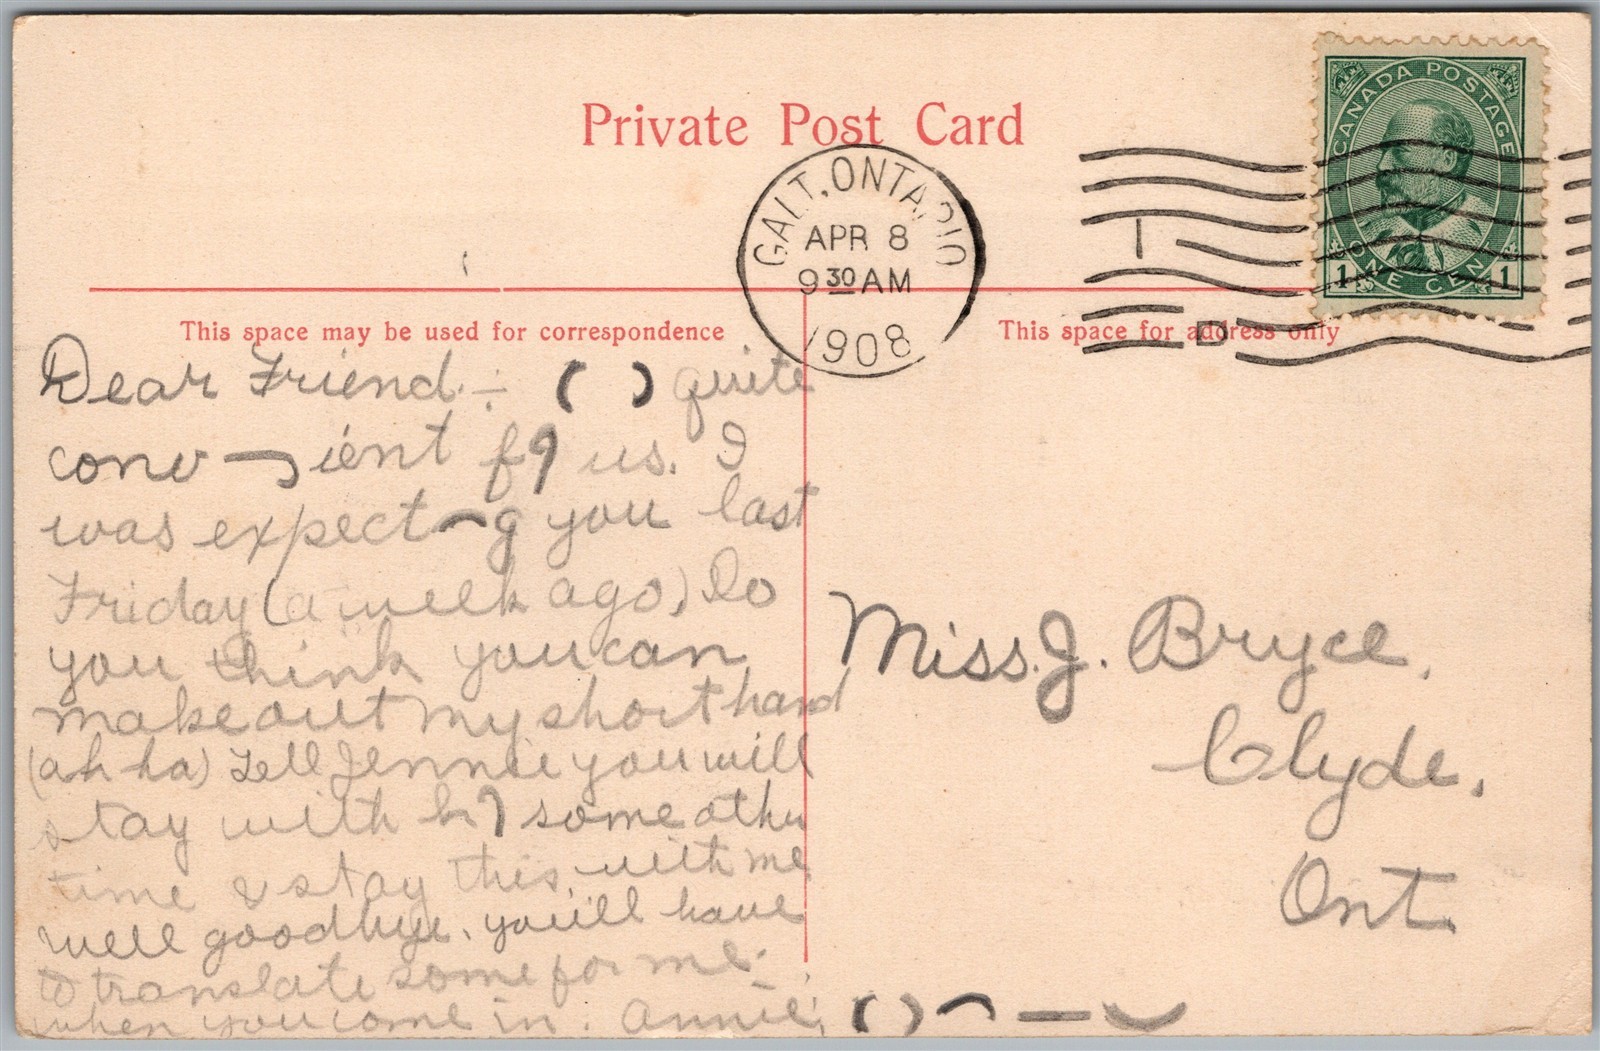 Private Post Card
CANADA POSTAGE
1 ONE CENT 1
GALT, ONTARIO
APR 8
9 30 AM
1908
This space may be used for correspondence
This space for address only
Dear Friend:- ( ) quite
conv ient f us. I
was expect g you last
Friday (a week ago) Do
you think you can
make out my shorthand
(ah ha) Tell Jennie you will
stay with h some other
time & stay this with me
well goodbye, you'll have
to translate some for me
when you come in. Annie
Miss. J. Bryce.
Clyde.
Ont.